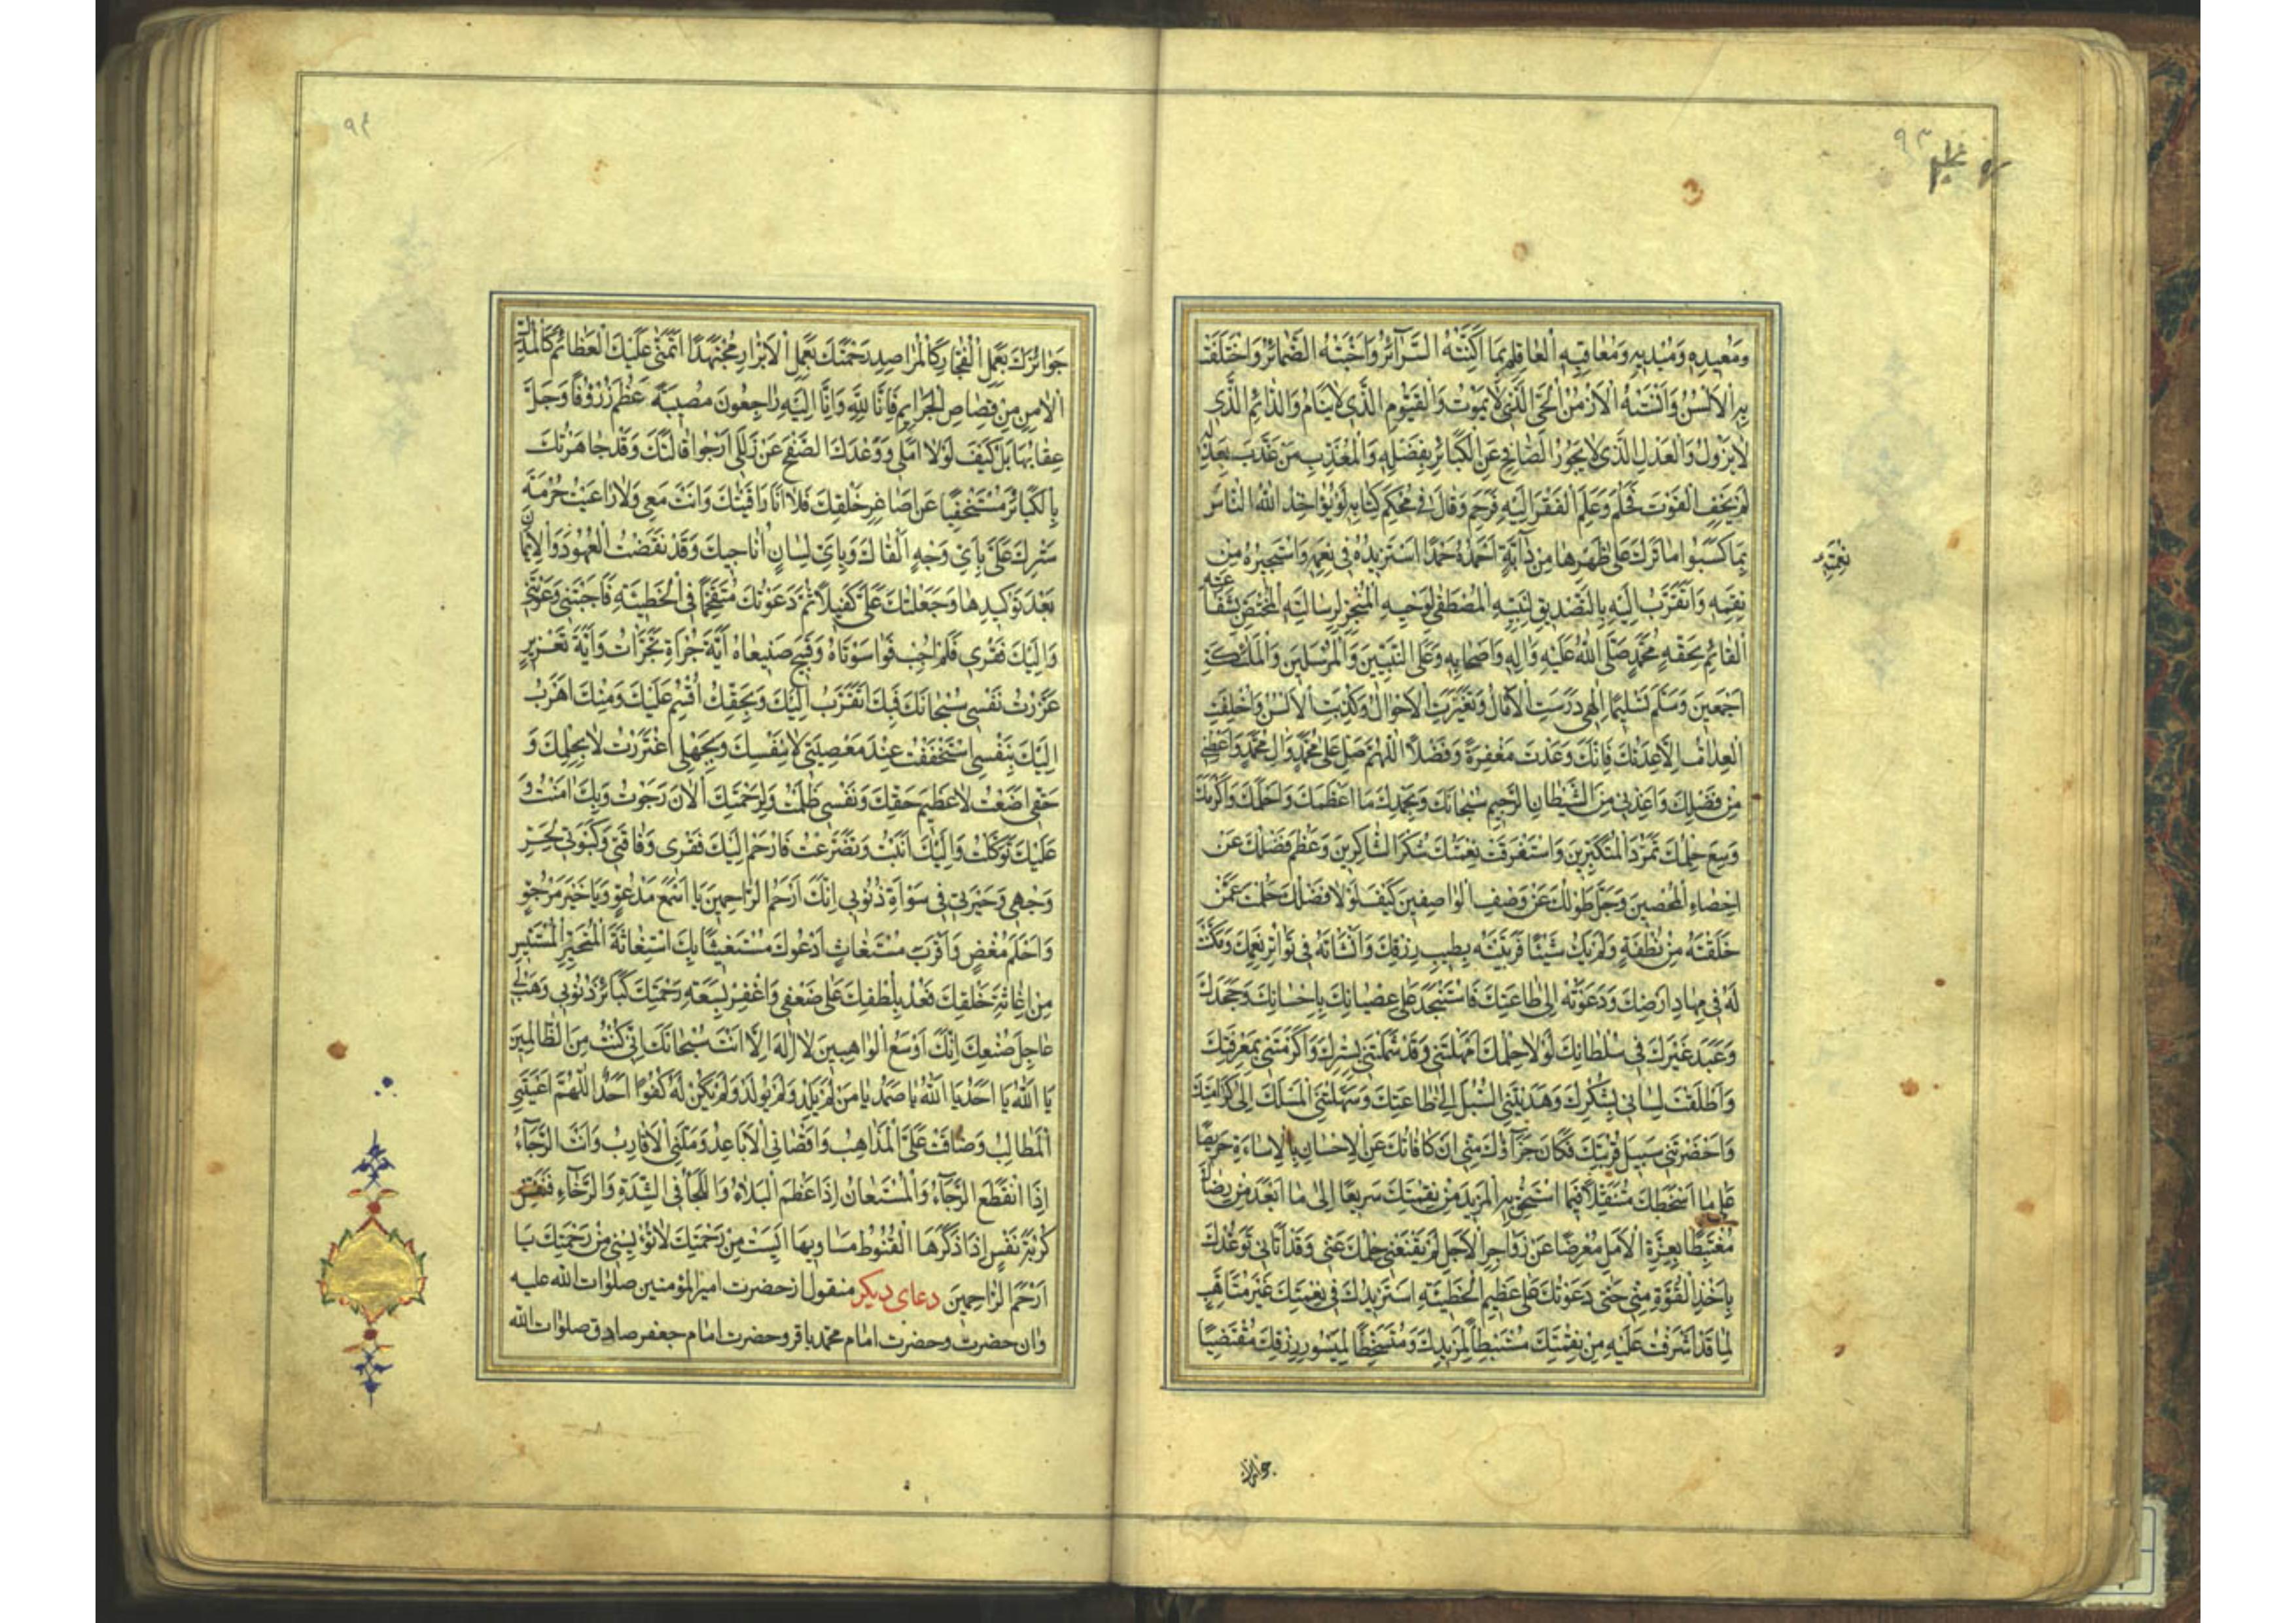 ٩٣
ومُعيدِهِ وَمُبْديهِ وَمُعاقِبِهِ اَلْعالِمِ بِما اَكَنَّتْهُ السَّرآئِرُ وَاَخْبَتْهُ الضَّمائِرُ وَاخْتَلَفَتْ
بِهِ الْاَلْسُنُ وَاَنْسَتْهُ الْاَزْمُنُ اَلْحَىِّ الَّذى لايَمُوتُ وَالْقَيُّومِ الَّذى لايَنامُ وَالدّائِمِ الَّذى
لايَزُولُ وَالْعَدْلِ الَّذى لايَجُورُ الصّافِحِ عَنِ الْكَبائِرِ بِفَضْلِهِ وَالْمُعَذِّبِ مَنْ عَذَّبَ بِعَدْلِهِ
لَمْ يَخَفِ الْفَوْتَ فَحَلُمَ وَعَلِمَ الْفَقْرَ اِلَيْهِ فَرَحِمَ وَقالَ فى مُحْكَمِ كِتابِهِ لَوْ يُؤاخِذُ اللهُ النّاسَ
بِما كَسَبُوا ماتَرَكَ عَلى ظَهْرِها مِنْ دآبَّةٍ اَحْمَدُهُ حَمْدًا اَسْتَزيدُهُ فى نِعَمِهِ وَاَسْتَجيرُهُ مِنْ
نِعْمَتِهِ
نِقَمِهِ وَاَتَقَرَّبُ اِلَيْهِ بِالتَّصْديقِ لِنَبِيِّهِ الْمُصْطَفى لِوَحْيِهِ الْمُتَخَيَّرِ لِرِسالَتِهِ الْمُخْتَصِّ بِشَفاعَتِهِ
اَلْقائِمِ بِحَقِّهِ مُحَمَّدٍ صَلَّى اللهُ عَلَيْهِ وَالِهِ وَاَصْحابِهِ وَعَلَى النَّبِيّينَ وَالْمُرْسَلينَ وَالْمَلئِكَةِ
اَجْمَعينَ وَسَلَّمَ تَسْليمًا اِلهى دَرَسَتِ الْامالُ وَتَغَيَّرَتِ الْاَحْوالُ وَكَذَبَتِ الْاَلْسُنُ وَاُخْلِفَتِ
الْعِداتُ اِلّا عِدَتُكَ فَاِنَّكَ وَعَدْتَ مَغْفِرَةً وَفَضْلًا اَللّهُمَّ صَلِّ عَلى مُحَمَّدٍ وَالِ مُحَمَّدٍ وَاَعْطِنى
مِنْ فَضْلِكَ وَاَعِذْنى مِنَ الشَّيْطانِ الرَّجيمِ سُبْحانَكَ وَبِحَمْدِكَ ما اَعْظَمَكَ وَاَحْلَمَكَ وَاَكْرَمَكَ
وَسِعَ حِلْمُكَ تَمَرُّدَ الْمُتَكَبِّرينَ وَاسْتَغْرَقَتْ نِعْمَتُكَ شُكْرَ الشّاكِرينَ وَعَظُمَ فَضْلُكَ عَنْ
اِحْصاءِ الْمُحْصينَ وَجَلَّ طَوْلُكَ عَنْ وَصْفِ الْواصِفينَ كَيْفَ لَوْلا فَضْلُكَ حَلُمْتَ عَمَّنْ
خَلَقْتَهُ مِنْ نُطْفَةٍ وَلَمْ يَكُ شَيْئًا فَرَبَّيْتَهُ بِطيبِ رِزْقِكَ وَاَنْشَأْتَهُ فى تَواتُرِ نِعَمِكَ وَمَكَّنْتَ
لَهُ فى مِهادِ اَرْضِكَ وَدَعَوْتَهُ اِلى طاعَتِكَ فَاسْتَنْجَدَ عَلى عِصْيانِكَ بِاِحْسانِكَ وَجَحَدَكَ
وَعَبَدَ غَيْرَكَ فى سُلْطانِكَ لَوْلا حِلْمُكَ اَمْهَلْتَنى وَقَدْ شَمَلْتَنى بِسِتْرِكَ وَاَكْرَمْتَنى بِمَعْرِفَتِكَ
وَاَطْلَقْتَ لِسانى بِشُكْرِكَ وَهَدَيْتَنِى السُّبُلَ اِلى طاعَتِكَ وَسَهَّلْتَنِى الْمَسْلَكَ اِلى كَرامَتِكَ
وَاَحْضَرْتَنى سَبيلَ قُرْبَتِكَ فَكانَ جَزآؤُكَ مِنّى اَنْ كافَأْتُكَ عَنِ الْاِحْسانِ بِالْاِساءَةِ حَريصًا
عَلى ما اَسْخَطَكَ مُتَنَقِّلًا فيما اَسْتَحِقُّ بِهِ الْمَزيدَ مِنْ نِقْمَتِكَ سَريعًا اِلى ما اَبْعَدَ مِنْ رِضاكَ
مُغْتَبِطًا بِعِزَّةِ الْاَمَلِ مُعْرِضًا عَنْ زَواجِرِ الْاَجَلِ لَمْ يَقْنَعْنى حِلْمُكَ عَنّى وَقَدْ اَتانى تَوَعُّدُكَ
بِاَخْذِ الْقُوَّةِ مِنّى حَتّى دَعَوْتُكَ عَلى عَظيمِ الْخَطيئَةِ اَسْتَزيدُكَ فى نِعْمَتِكَ غَيْرَ مُتَاَهِّبٍ
لِما قَدْ اَشْرَفْتُ عَلَيْهِ مِنْ نِقْمَتِكَ مُسْتَبْطِأً لِمَزيدِكَ وَمُتَسَخِّطًا لِمَيْسُورِ رِزْقِكَ مُقْتَضِيًا
جوائزك
٩٤
جَوائِزَكَ بِعَمَلِ الْفُجّارِ كَالْمُراصِدِ رَحْمَتَكَ بِعَمَلِ الْاَبْرارِ مُجْتَهِدًا اَتَمَنّى عَلَيْكَ الْعَظائِمَ كَالْمُدِلِّ
الْامِنِ مِنْ قِصاصِ الْجَرايِمِ فَاِنّا لِلّهِ وَاِنّا اِلَيْهِ راجِعُونَ مُصيبَةٌ عَظُمَ رُزْؤُها وَجَلَّ
عِقابُها بَلْ كَيْفَ لَوْلا اَمَلى وَوَعْدُكَ الصَّفْحَ عَنْ زَلَلى اَرْجُوا اِقالَتَكَ وَقَدْ جاهَرْتُكَ
بِالْكَبائِرِ مُسْتَخْفِيًا عَنْ اَصاغِرِ خَلْقِكَ فَلا اَنَا راقَبْتُكَ وَاَنْتَ مَعى وَلا راعَيْتُ حُرْمَةَ
سَتْرِكَ عَلَىَّ بِاَىِّ وَجْهٍ اَلْقاكَ وَبِاَىِّ لِسانٍ اُناجيكَ وَقَدْ نَقَضْتُ الْعُهُودَ وَالْاَيْمانَ
بَعْدَ تَوْكيدِها وَجَعَلْتُكَ عَلَىَّ كَفيلًا ثُمَّ دَعَوْتُكَ مُتَقَحِّمًا فِى الْخَطيئَةِ فَاَجَبْتَنى وَدَعَوْتَنى
وَاِلَيْكَ فَقْرى فَلَمْ اُجِبْ فَواسَوْأَتاهُ وَقُبْحَ صَنيعاهُ اَيَّةَ جُرْأَةٍ تَجَرَّأْتُ وَاَيَّةَ تَغْريرٍ
غَرَّرْتُ نَفْسى سُبْحانَكَ فَبِكَ اَتَقَرَّبُ اِلَيْكَ وَبِحَقِّكَ اُقْسِمُ عَلَيْكَ وَمِنْكَ اَهْرَبُ
اِلَيْكَ بِنَفْسى اسْتَخْفَفْتُ عِنْدَ مَعْصِيَتى لا بِنَفْسِكَ وَبِجَهْلى اغْتَرَرْتُ لا بِحِلْمِكَ وَ
حَقّى اَضَعْتُ لا عَظيمَ حَقِّكَ وَنَفْسى ظَلَمْتُ وَلِرَحْمَتِكَ الْانَ رَجَوْتُ وَبِكَ امَنْتُ وَ
عَلَيْكَ تَوَكَّلْتُ وَاِلَيْكَ اَنَبْتُ وَتَضَرَّعْتُ فَارْحَمْ اِلَيْكَ فَقْرى وَفاقَتى وَكَبْوَتى لِحُرِّ
وَجْهى وَحَيْرَتى فى سَوْأَةِ ذُنُوبى اِنَّكَ اَرْحَمُ الرّاحِمينَ يا اَسْمَعَ مَدْعُوٍّ وَياخَيْرَ مَرْجُوٍّ
وَاَحْلَمَ مُغْضٍ وَاَقْرَبَ مُسْتَغاثٍ اَدْعُوكَ مُسْتَغيثًا بِكَ اسْتِغاثَةَ الْمُتَحَيِّرِ الْمُسْتَيْئِسِ
مِنْ اِغاثَةِ خَلْقِكَ فَعُدْ بِلُطْفِكَ عَلى ضَعْفى وَاغْفِرْ بِسَعَةِ رَحْمَتِكَ كَبائِرَ ذُنُوبى وَهَبْ لى
عاجِلَ صُنْعِكَ اِنَّكَ اَوْسَعُ الْواهِبينَ لا اِلهَ اِلّا اَنْتَ سُبْحانَكَ اِنّى كُنْتُ مِنَ الظّالِمينَ
يا اَللهُ يا اَحَدُ يا اَللهُ يا صَمَدُ يا مَنْ لَمْ يَلِدْ وَلَمْ يُولَدْ وَلَمْ يَكُنْ لَهُ كُفُوًا اَحَدٌ اَللّهُمَّ اَعْيَتْنِى
الْمَطالِبُ وَضاقَتْ عَلَىَّ الْمَذاهِبُ وَاَقْصانِى الْاَباعِدُ وَمَلَّنِى الْاَقارِبُ وَاَنْتَ الرَّجآءُ
اِذَا انْقَطَعَ الرَّجآءُ وَالْمُسْتَعانُ اِذا عَظُمَ الْبَلاءُ وَاللَّجَأُ فِى الشِّدَّةِ وَالرَّخآءِ فَنَفِّسْ
كُرْبَةَ نَفْسٍ اِذا ذَكَّرَهَا الْقُنُوطُ مَساوِيَها اَيِسَتْ مِنْ رَحْمَتِكَ لاتُؤْيِسْنى مِنْ رَحْمَتِكَ يا
اَرْحَمَ الرّاحِمينَ دعاى ديكر منقول از حضرت اميرالمؤمنين صلوات الله عليه
وان حضرت وحضرت امام محمد باقر وحضرت امام جعفر صادق صلوات الله